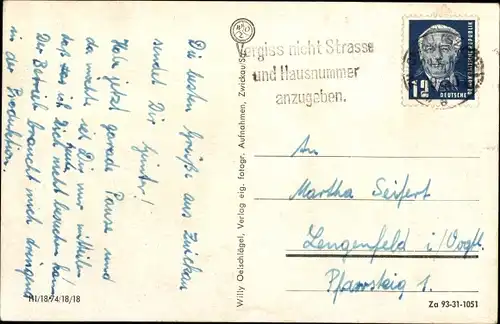 Die besten Grüße aus Zwickau
sendet Dir Günter!
Habe jetzt gerade Pause und
da möchte ich Dir nur mitteilen
daß ich Dich nicht besuchen kann
Der Betrieb braucht mich dringend
in der Produktion.
III/18/74/18/18
Willy Oelschlägel, Verlag eig. fotogr. Aufnahmen, Zwickau/Sa.
Vergiss nicht Strasse
und Hausnummer
anzugeben.
12
DEUTSCHE
An
Martha Seifert
Lengenfeld i/Vogtl.
Pfarrsteig 1.
Za 93-31-1051